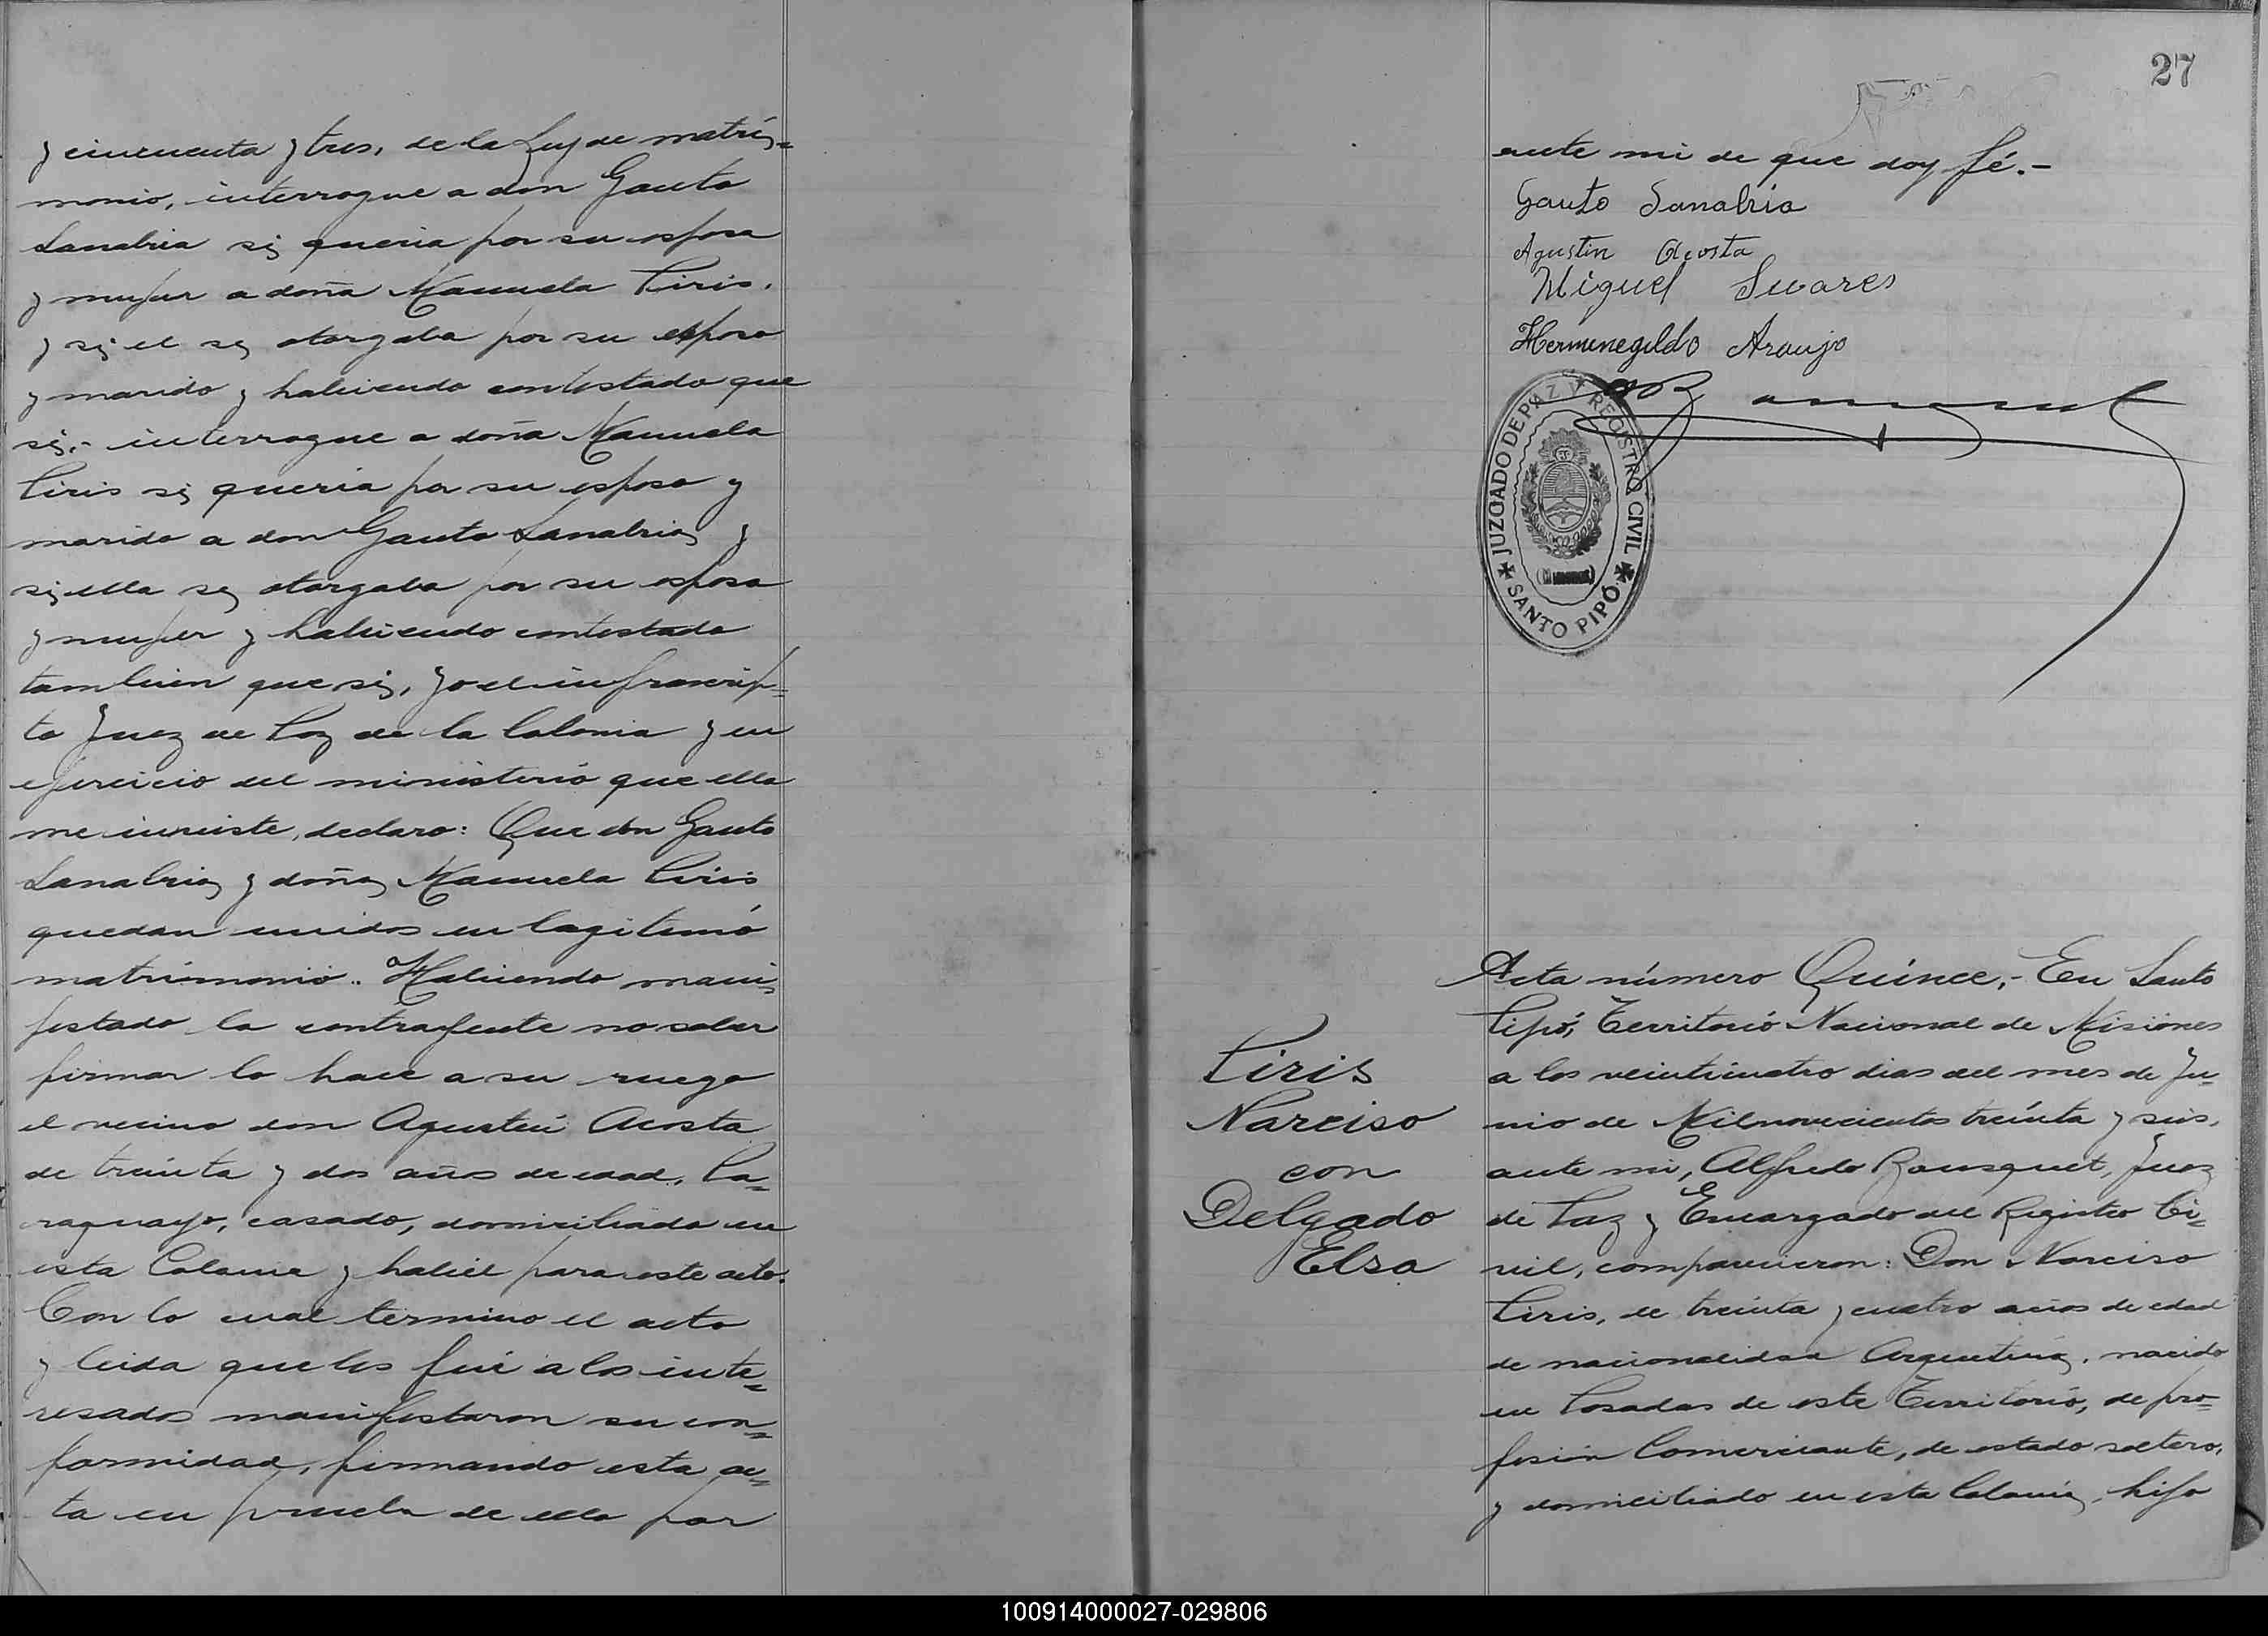 y cincuenta y tres, de la Ley de matri-
monio, interrogue a don Gauto
Sanabria si queria por su esposa
y mujer a doña Manuela Piris,
y si el se otorgaba por su esposo
y marido y habiendo contestado que
si.- interrogue a doña Manuela
Piris si queria por su esposo y
marido a don Gauto Sanabria y
si ella se otorgaba por su esposa
y mujer y habiendo contestado
tambien que si, yo el infrascrip-
to Juez de Paz de la Colonia y en
ejercicio del ministerio que ella
me inviste, declaro: Que don Gauto
Sanabria y doña Manuela Piris
quedan unidos en legitimo
matrimonio.. Habiendo mani-
festado la contrayente no saber
firmar lo hace a su ruego
el vecino don Agustin Acosta
de treinta y dos años de edad, Pa-
raguayo, casado, domiciliado en
esta Colonia y habil para este acto.
Con lo cual termino el acto
y leida que les fué a los inte-
resados manifestaron su con-
formidad, firmando esta ac-
ta en prueba de ello por
27
ante mi de que doy fé.-
Gauto Sanabria
Agustin Acosta
Miguel Suares
Hermenegildo Araujo
JUZGADO DE PAZ Y REGISTRO CIVIL
(Misiones)
SANTO PIPÓ
Piris
Narciso
con
Delgado
Elsa
Acta número Quince,- En Santo
Pipó, Territorio Nacional de Misiones
a los veinticuatro dias del mes de Ju-
nio de Mil novecientos treinta y seis,
ante mi, Alfredo Bousquet, Juez
de Paz y Encargado del Registro Ci-
vil, comparecieron: Don Narciso
Piris, de treinta y cuatro años de edad
de nacionalidad Argentina, nacido
en Posadas de este Territorio, de pro-
fesión Comerciante, de estado soltero,
y domiciliado en esta Colonia, hijo
100914000027-029806